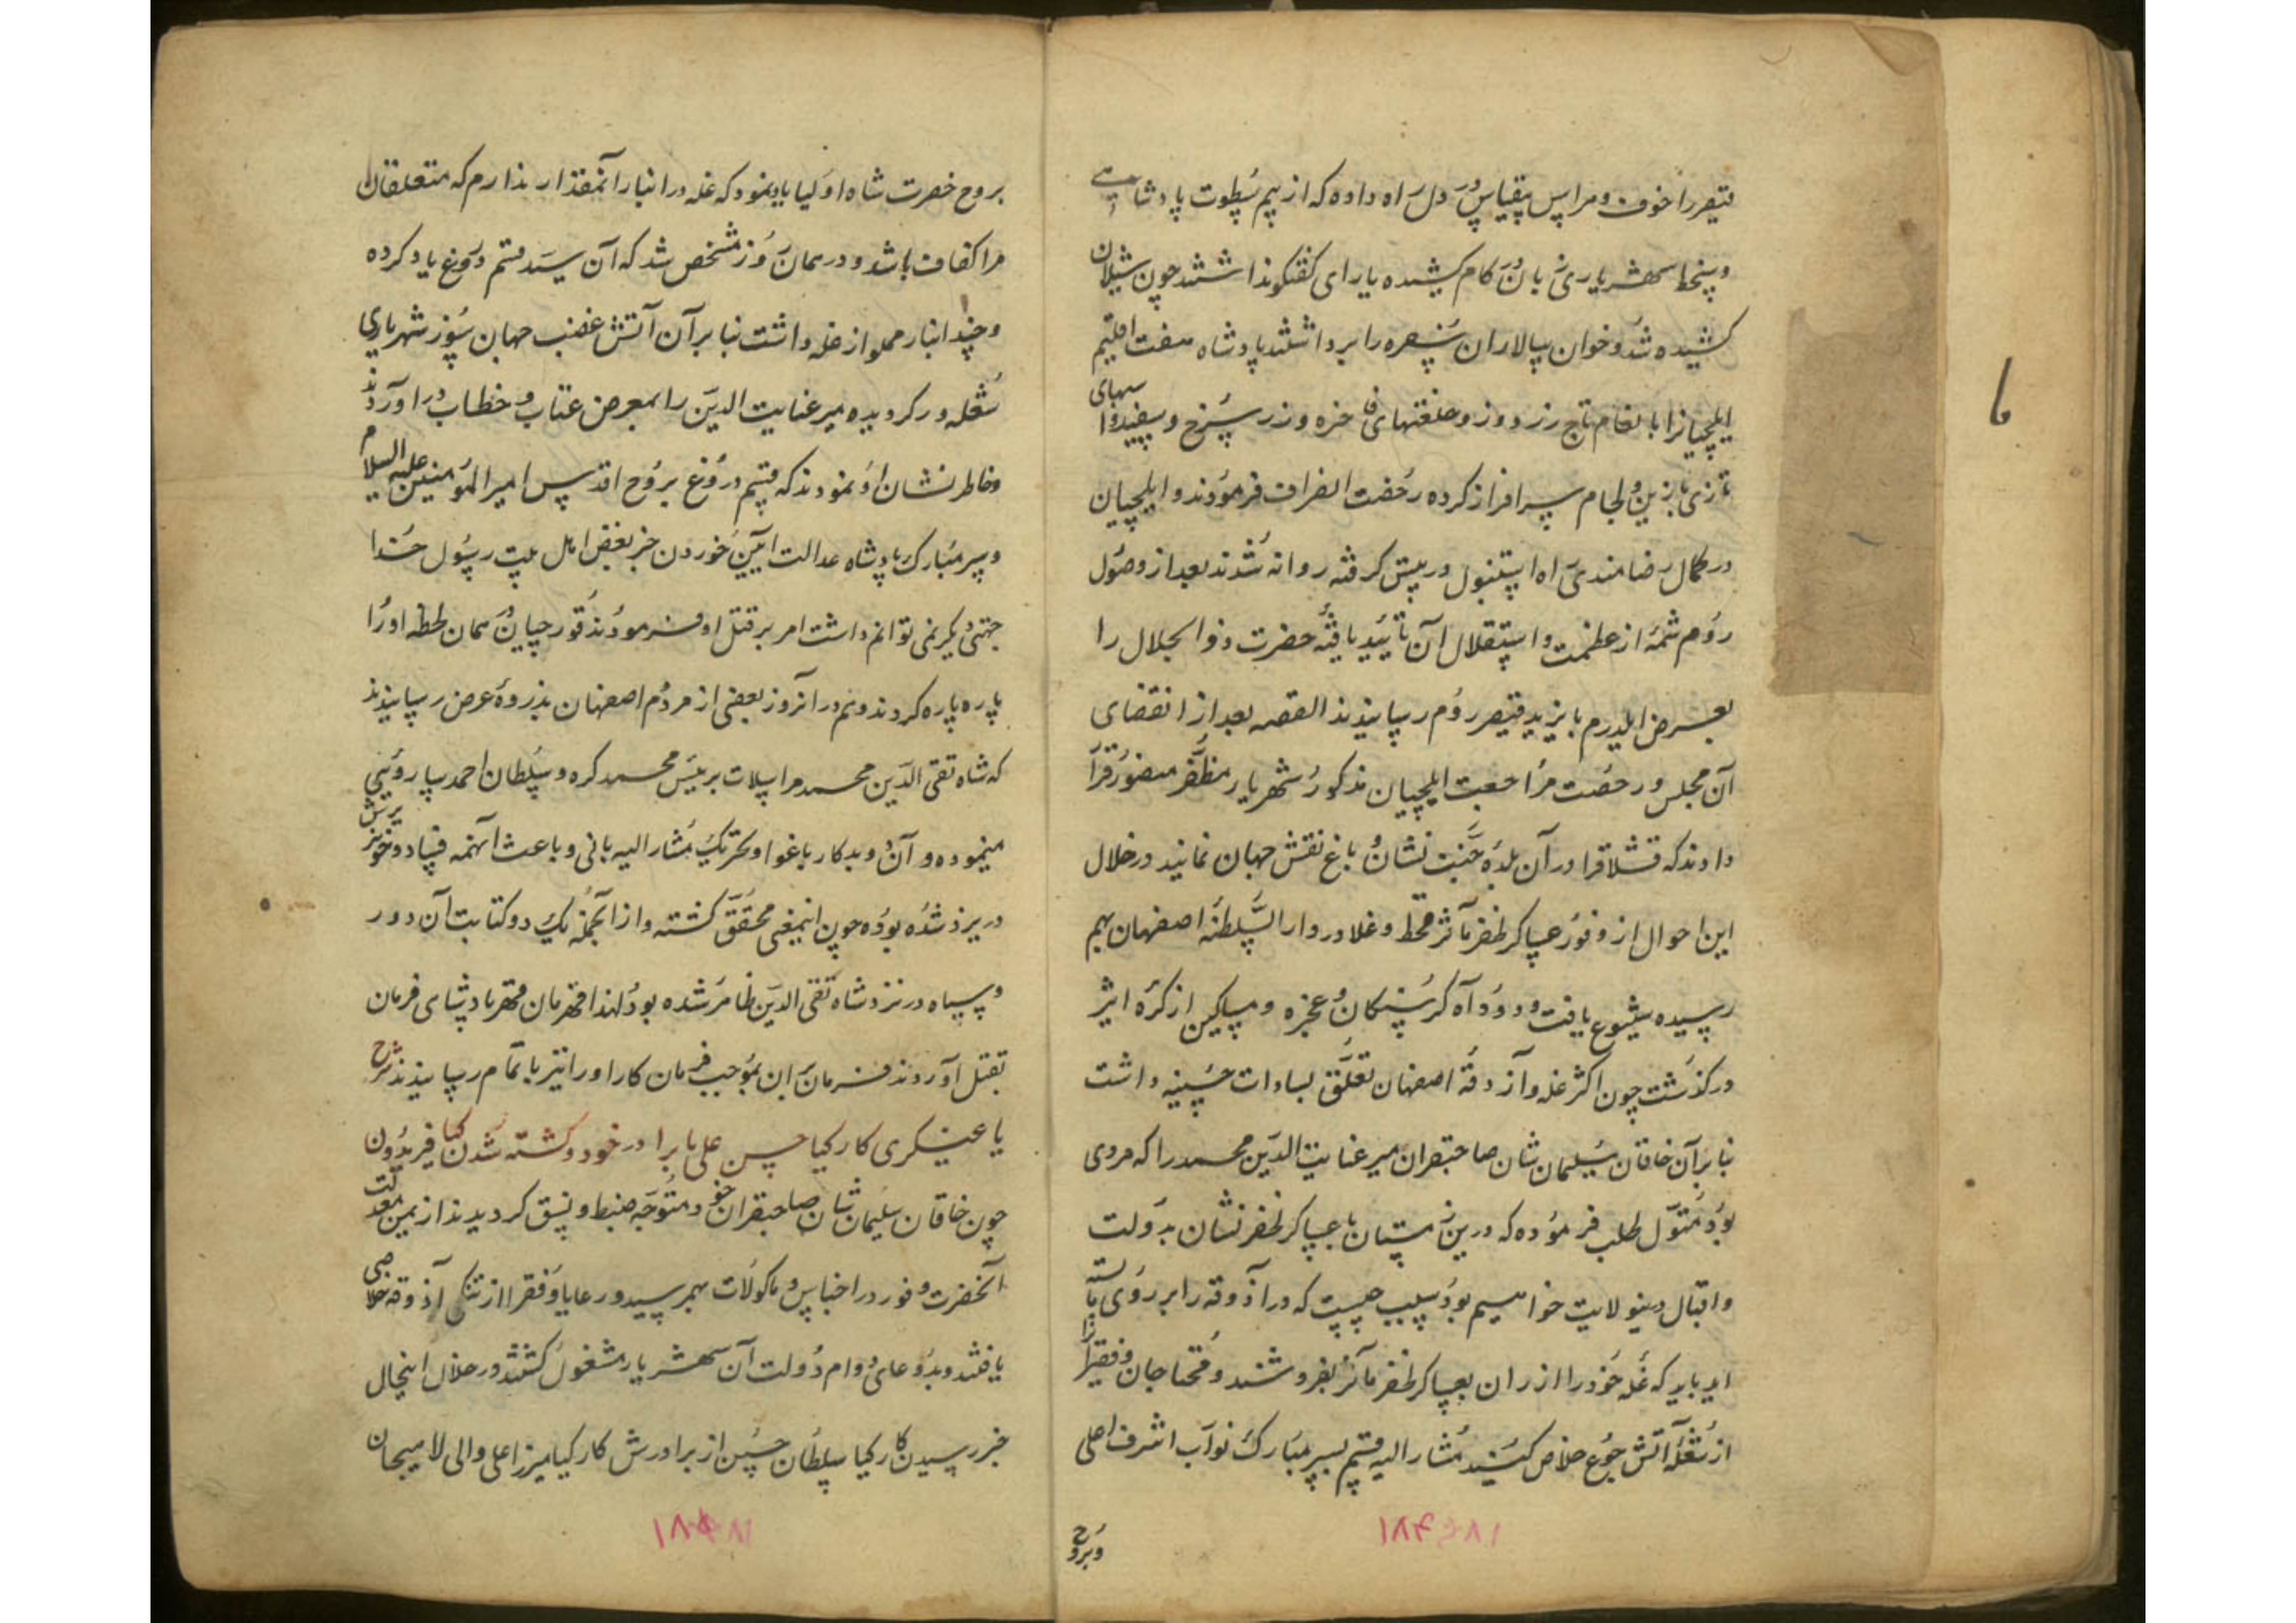 قیصر را خوف و هراس بیقیاس در دل راه داده که از بیم سطوت پادشاهی
و سخط شهریاری زبان در کام کشیده یارای گفتگو نداشتند چون شیلان
کشیده شد و خوان سالاران سفره را برداشتند پادشاه هفت اقلیم
ایلچیانرا بانعام تاج زردوز و خلعتهای فاخره و زر سرخ و سفید و اسبهای
تازی با زین و لجام سرافراز کرده رخصت انصراف فرمودند و ایلچیان
در کمال رضامندی راه استنبول در پیش گرفته روانه شدند بعد از وصول
روم شمهٔ از عظمت و استقلال آن تأیید یافتهٔ حضرت ذوالجلال را
بعرض ایلدرم بایزید قیصر روم رسانیدند القصه بعد از انقضای
آن مجلس و رخصت مراجعت ایلچیان مذکور شهریار مظفر منصور قرار
دادند که قشلاق را در آن بلدهٔ جنت نشان باغ نقش جهان نمایند در خلال
این احوال از وفور عساکر ظفر مآثر قحط و غلا در دار السلطنهٔ اصفهان بهم
رسیده شیوع یافت و دود آه گرسنگان و عجزه و مساکین از کرهٔ اثیر
درگذشت چون اکثر غله و آزوقهٔ اصفهان تعلق بسادات حسینیه داشت
بنابر آن خاقان سلیمان شان صاحبقران میر عنایت الدین محمد را که مردی
بود متمول طلب فرموده که درین زمستان با عساکر ظفر نشان بدولت
و اقبال درینولایت خواهیم بود سبب چیست که در آذوقه را بر روی ما بسته
اید باید که غلهٔ خود را ارزان بعساکر ظفر مآثر بفروشند و محتاجان و فقرا را
از شعلهٔ آتش جوع خلاص کنید مشار الیه قسم بسر مبارک نواب اشرف اعلی
و بروح
۱۸۴
بروح حضرت شاه اولیا یاد نمود که غله در انبار آنمقدار ندارم که متعلقان
مرا کفاف باشد و در همان روز مشخص شد که آن سید قسم دروغ یاد کرده
و چند انبار مملو از غله داشت بنابر آن آتش غضب جهان سوز شهریاری
شعله ور گردیده میر عنایت الدین را بمعرض عتاب و خطاب در آوردند
و خاطر نشان او نمودند که قسم دروغ بروح اقدس امیر المؤمنین علیه السلام
و سر مبارک پادشاه عدالت آیین خوردن جز بغض اهل بیت رسول خدا
جهتی دیگر نمی توانم داشت امر بر قتل او فرمودند قورچیان در همان لحظه او را
پاره پاره کردند و هم در آنروز بعضی از مردم اصفهان بذروهٔ عرض رسانیدند
که شاه تقی الدین محمد مراسلات برئیس محمد کره و سلطان احمد ساروئی
مینموده و آن دو بدکار باغوا و تحریک مشار الیه بانی و باعث آنهمه فساد و خونریزش
در یزد شده بوده چون اینمعنی محقق گشته و از آنجمله یک دو کتابت آن دو
و سیاه در نزد شاه تقی الدین ظاهر شده بود لهذا قهرمان قهر پادشاهی فرمان
بقتل آوردند فرمان بران بموجب فرمان کار او را نیز باتمام رسانیدند شرح
یاغیگری کارکیا حسن علی بابرادر خود و کشته شدن کیا فریدون
چون خاقان سلیمان شان صاحبقران خود متوجه ضبط و نسق گردیدند از یمن معدلت
آنحضرت وفور در اجناس و ماکولات بهم رسید و رعایا و فقرا از تنگی آذوقه خلاصی
یافتند و بدعای دوام دولت آن شهریار مشغول گشتند در خلال اینحال
خبر رسیدن کارکیا سلطان حسین از برادرش کارکیا میرزا علی والی لاهیجان